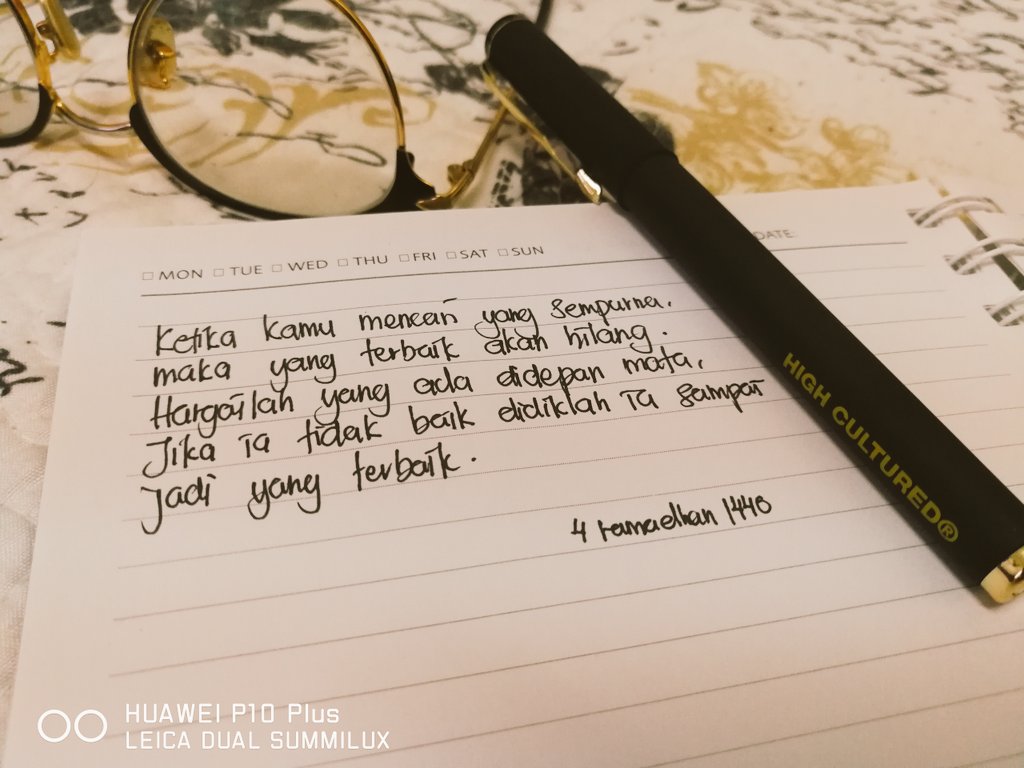 □ MON □ TUE □ WED □ THU □ FRI □ SAT □ SUN
DATE:
Ketika kamu mencari yang sempurna.
maka yang terbaik akan hilang.
Hargailah yang ada didepan mata.
Jika ia tidak baik didiklah ia sampai
jadi yang terbaik.
4 ramadhan 1440
HIGH CULTURED®
HUAWEI P10 Plus
LEICA DUAL SUMMILUX